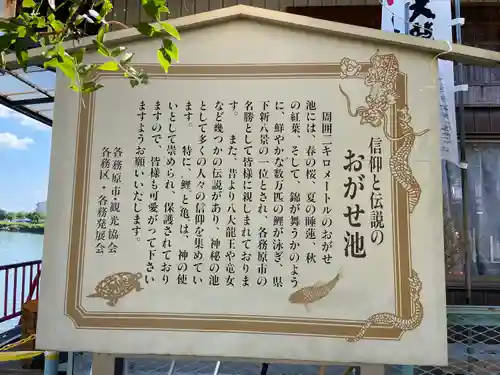 信仰と伝説の
おがせ池
周囲二キロメートルのおがせ
池には、春の桜、夏の睡蓮、秋
の紅葉、そして、錦が舞うかのよう
に、鮮やかな数万匹の鯉が泳ぎ、県
下新八景の一位とされ、各務原市の
名勝として皆様に親しまれておりま
す。　また、昔より八大龍王や竜女
など幾つかの伝説があり、神秘の池
として多くの人々の信仰を集めてい
ます。　特に、鯉と亀は、神の使
いとして崇められ、保護されており
ますので、皆様も可愛がって下さい
ますようお願いいたします。
各務原市観光協会
各務区・各務発展会